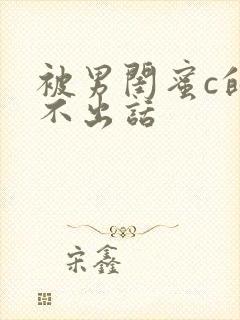 被男闺蜜c的
不出话
宋鑫